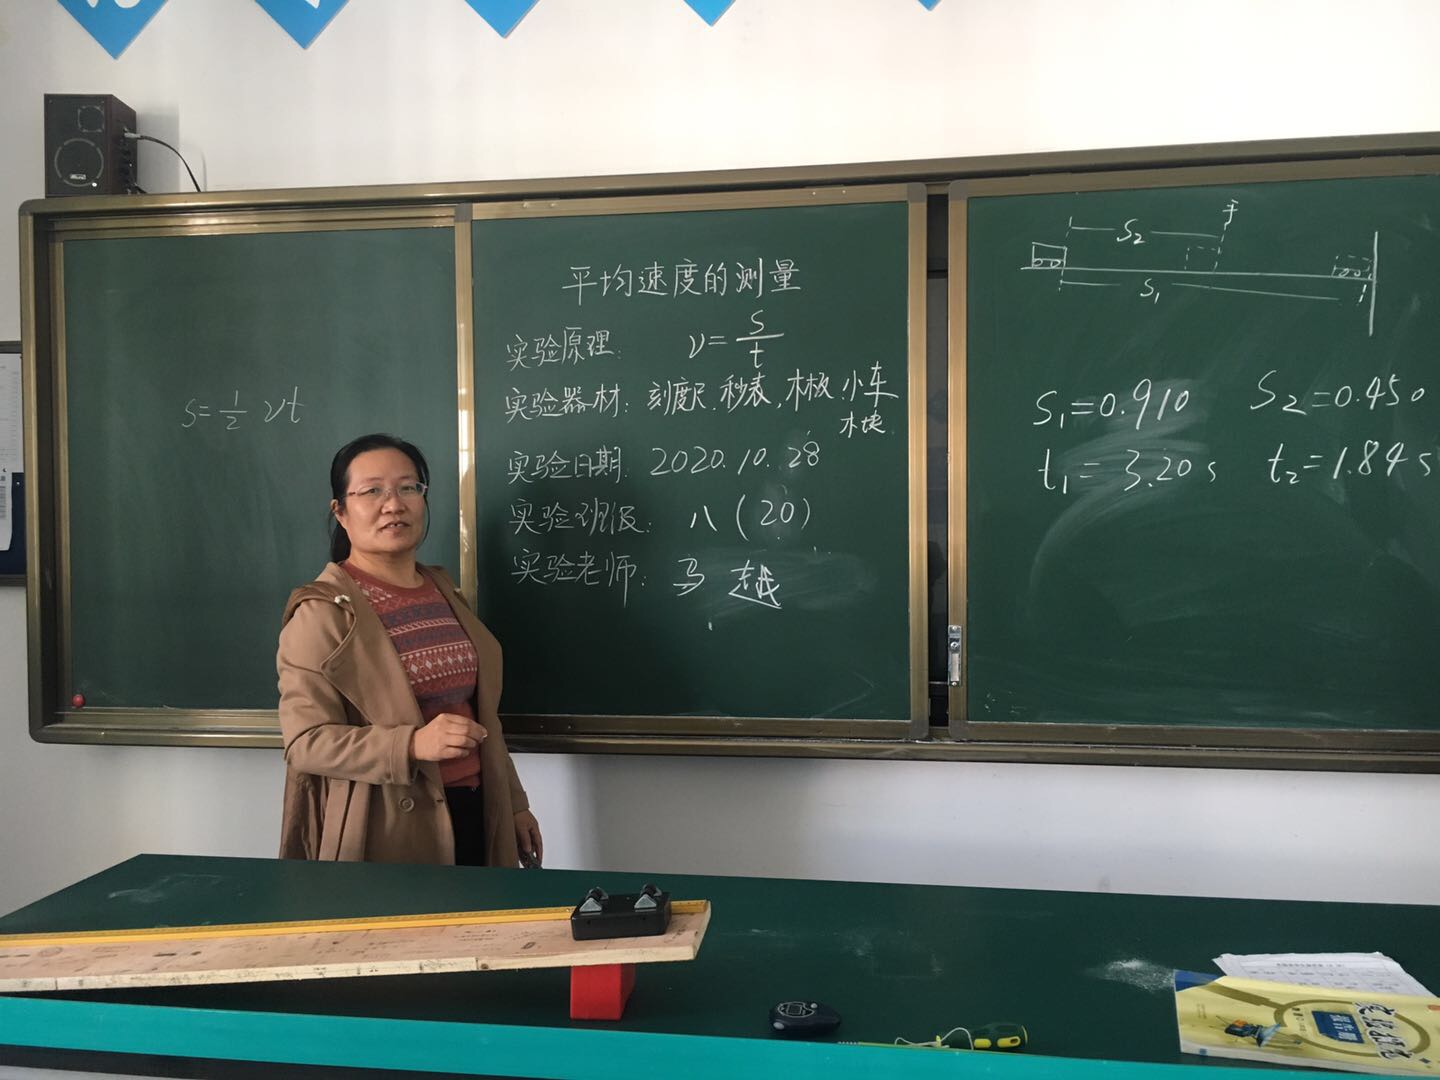 s=½vt
平均速度的测量
实验原理: v=s/t
实验器材: 刻度尺,秒表,木板,小车
木块
实验日期: 2020.10.28
实验班级: 八(20)
实验老师: 马越
S₂
S₁
S₁=0.910 S₂=0.450
t₁=3.20s t₂=1.84s